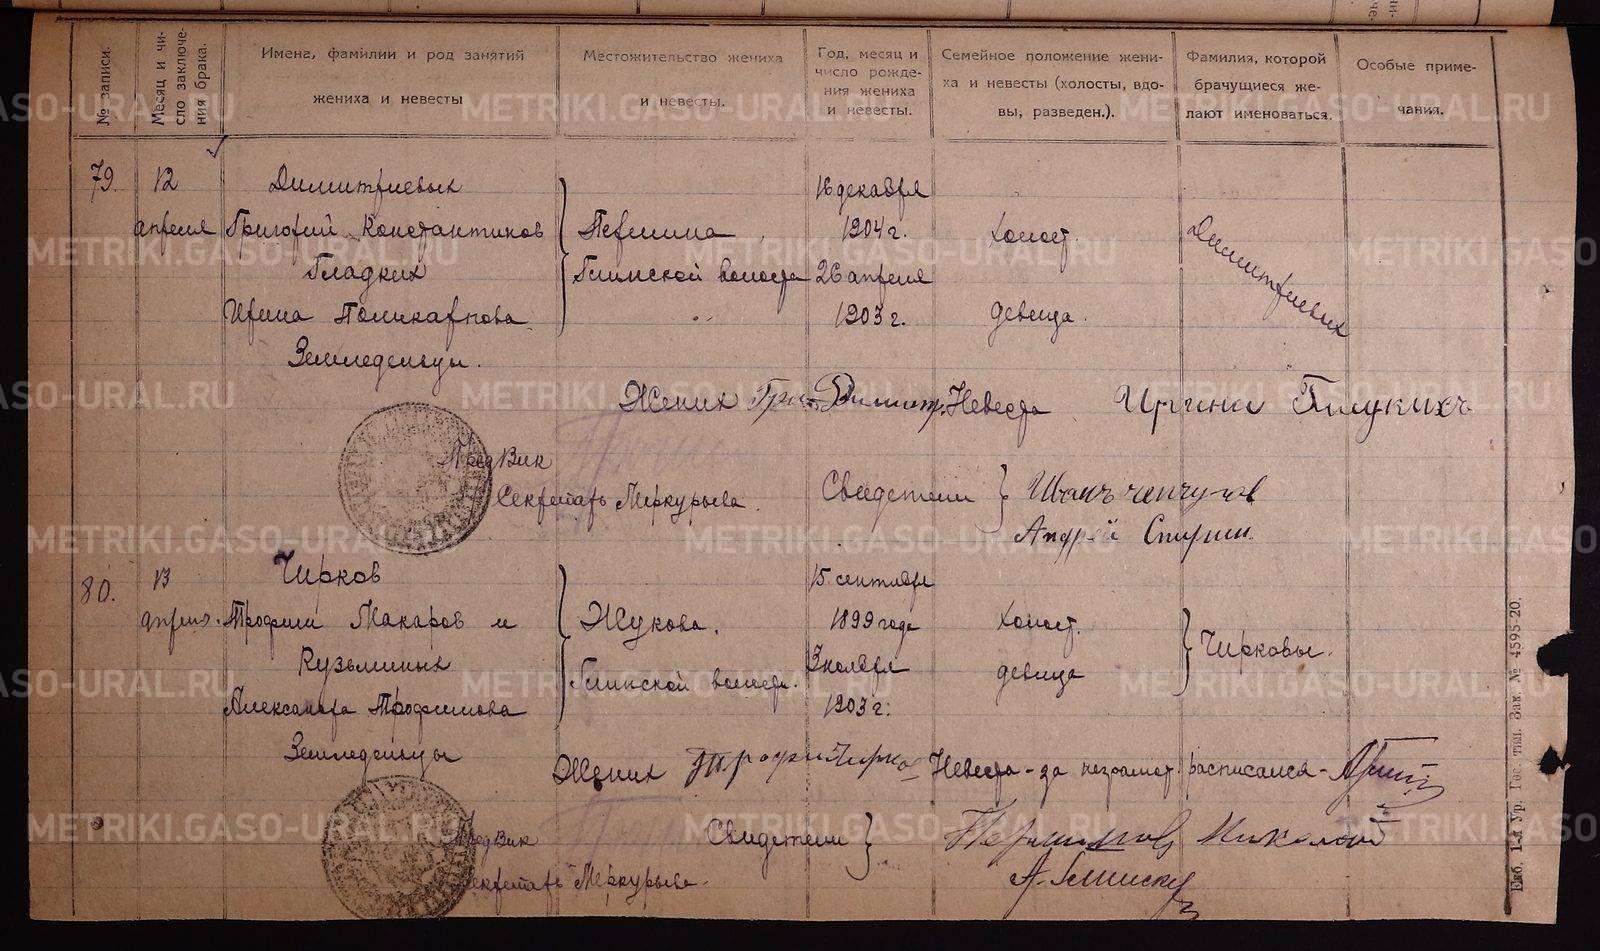 № записи.
Месяц и чи-
сло заключе-
ния брака.
Имена, фамилии и род занятий
жениха и невесты
Местожительство жениха
и невесты.
Год, месяц и
число рожде-
ния жениха
и невесты.
Семейное положение жени-
ха и невесты (холосты, вдо-
вы, разведен.).
Фамилия, которой
брачущиеся же-
лают именоваться.
Особые приме-
чания.
79.
12
апреля
Димитриевых
Григорий Константинов
Гладких
Ирина Поликарпова
Земледельцы.
Першина
Глинской волости
16 декабря
1904 г.
26 апреля
1903 г.
холост.
девица.
Димитриевых
Жених Григ. Димитр. Невеста Ирина Глуких
Пред Вик
Секретарь Меркурьева.
Свидетели } Иванъ
Андрей
80.
13
апреля.
Чирков
Трофим Макаров и
Кузьминых
Александра Трофимова
Земледельцы
Жукова.
Глинской волости.
15 сентября
1899 года
3 ноября
1903 г.
холост.
девица
Чирковы.
Жених Трофим Чирков Невеста - за неграмот. расписался -
Пред Вик
Секретарь Меркурьева.
Свидетели } Николай
А. Глинских
Екб. 1-я Ур. Гос. тип. Зак. № 4595-20.
METRIKI.GASO-URAL.RU